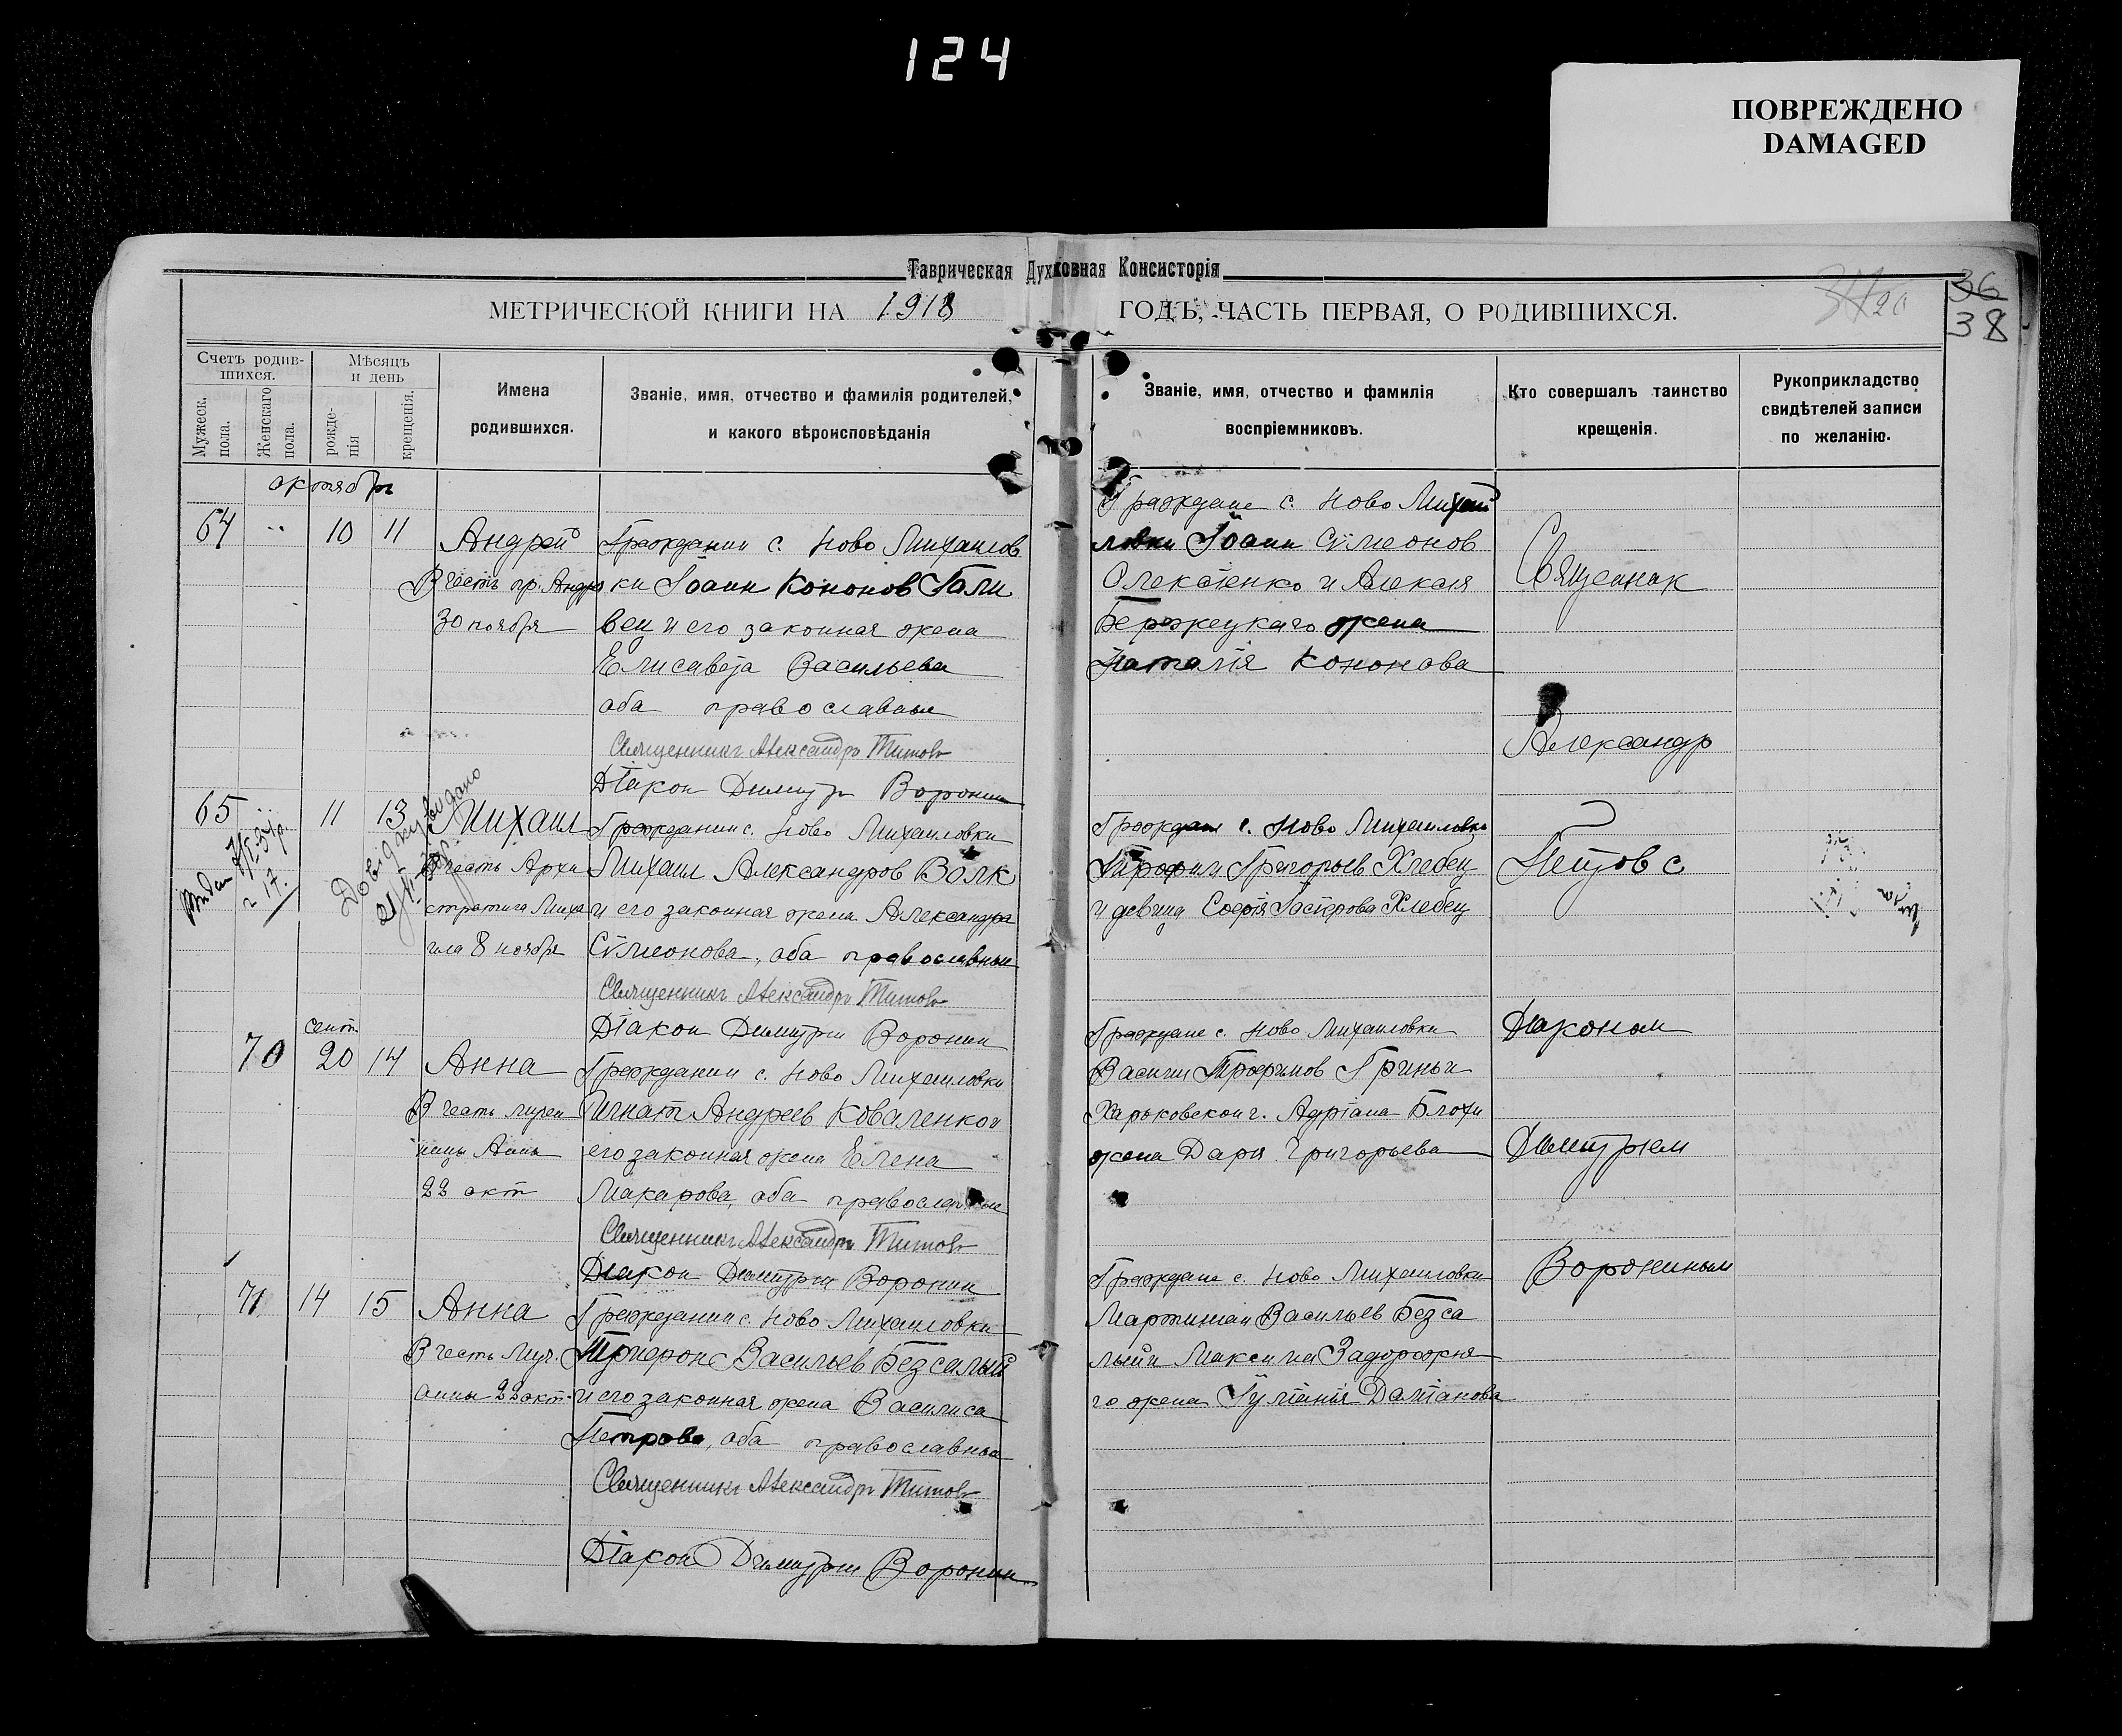 124
ПОВРЕЖДЕНО
DAMAGED
Таврическая Духовная Консисторія
МЕТРИЧЕСКОЙ КНИГИ НА 1918
ГОДЪ, ЧАСТЬ ПЕРВАЯ, О РОДИВШИХСЯ.
36
38
Счетъ родив-
шихся.
Мужеск.
пола.
Женскаго
пола.
Мѣсяцъ
и день
рожде-
нія
крещенія.
Имена
родившихся.
Званіе, имя, отчество и фамилія родителей,
и какого вѣроисповѣданія
Званіе, имя, отчество и фамилія
воспріемниковъ.
Кто совершалъ таинство
крещенія.
Рукоприкладство
свидѣтелей записи
по желанію.
октябрь
64 10 11
Андрей
В честь пр. Андр
30 ноября
Гражданин с. Ново Михаилов
ки Іоанн Кононов Гали
вец и его законная жена
Елисавета Васильева
оба православные
Священникъ Александръ Титовъ
Діакон Димитри Воронин
Граждане с. Ново Михаи
ловки Іоанн Сѵмеонов
Олексіенко и Алексія
Бережецкаго жена
Наталія Кононова
65 11 13
Михаил
В честь Архи
стратига Миха
ила 8 ноября
Гражданин с. Ново Михаиловки
Михаил Александров Волк
и его законная жена Александра
Сѵмеонова, оба православные
Священникъ Александръ Титовъ
Діакон Димитри Воронин
Граждане с. Ново Михаиловки
Трофим Григорьев Хлебец
и девица Софія Хлебец
сент.
70 20 14
Анна
В честь мучен
ицы Анны
22 окт
Гражданин с. Ново Михаиловки
Игнат Андреев Коваленко и
его законная жена Елена
Макарова, оба православные
Священникъ Александръ Титовъ
Діакон Димитри Воронин
Граждане с. Ново Михаиловки
Василий Трофимов Гринь и
Харьковской г. Адріана Блохи
жена Дарія Григорьева
71 14 15
Анна
В честь Муч.
Анны 22 окт.
Гражданин с. Ново Михаиловки
Васильев Безсалый
и его законная жена Василиса
Петрова, оба православные
Священникъ Александръ Титовъ
Діакон Димитри Воронин
Граждане с. Ново Михаиловки
Мартиніан Васильев Безса
лый и Максима Задорожня
го жена Іуліанія Даміанова
Священник
Александр
Титов с
Діаконом
Димитріем
Ворониным